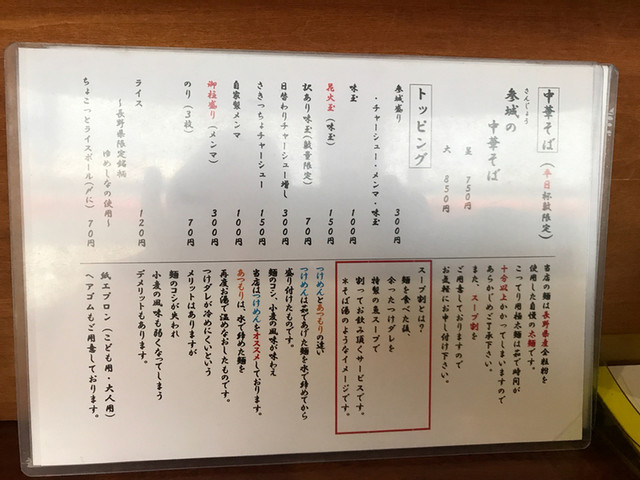 中華そば（平日杯数限定）
さんじょう
参城の
中華そば
並 750円
大 850円
トッピング
参城盛り 300円
・チャーシュー・メンマ・味玉
味玉 100円
花火玉（味玉） 150円
訳あり味玉（数量限定） 70円
日替わりチャーシュー増し 300円
さきっちょチャーシュー 150円
自家製メンマ 100円
御柱盛り（メンマ） 300円
のり（3枚） 70円
ライス 120円
～長野県限定銘柄
ゆめしなの使用～
ちょこっとライスボール（〆に） 70円
当店の麺は長野県産全粒粉を
使用した自慢の太麺です。
こってり用極太麺は茹で時間が
十分以上かかってしまいますので
あらかじめご了承下さい。
また、スープ割を
ご用意しておりますので
お気軽にお申し付け下さい。
スープ割とは？
麺を食べた後、
余ったつけダレを
特製の魚スープで
割ってお飲み頂くサービスです。
＊そば湯のようなイメージです。
つけめんとあつもりの違い
つけめんは茹であげた麺を水で締めてから
盛り付けたものです。
麺のコシ、小麦の風味が味わえ
当店はつけめんをオススメしております。
あつもりは、水で締めた麺を
再度お湯で温めなおしたものです。
つけダレが冷めにくいという
メリットはありますが
麺のコシが失われ
小麦の風味も弱くなってしまう
デメリットもあります。
紙エプロン（こども用・大人用）
ヘアゴムもご用意しております。